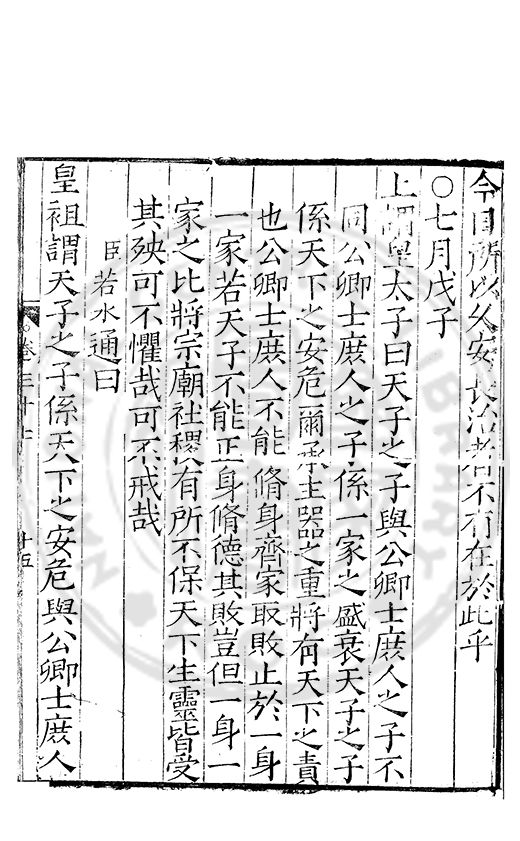 今日所以久安長治者不有在於此乎
○七月戊子
上謂皇太子曰天子之子與公卿士庶人之子不
同公卿士庶人之子係一家之盛衰天子之子
係天下之安危爾承主器之重將有天下之責
也公卿士庶人不能脩身齊家取敗止於一身
一家若天子不能正身脩德其敗豈但一身一
家之比將宗廟社稷有所不保天下生靈皆受
其殃可不懼哉可不戒哉
臣若水通曰
皇祖謂天子之子係天下之安危與公卿士庶人
卷三十七
十五